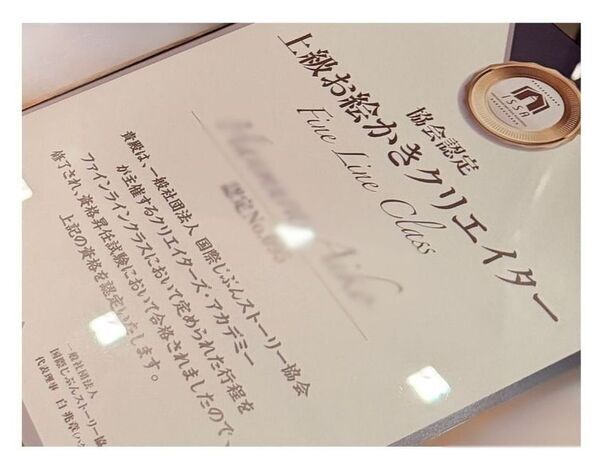 協会認定
上級お絵かきクリエイター
Fine Line Class
ISSA
認定No.
貴殿は、一般社団法人 国際じぶんストーリー協会
が主催するクリエイターズ・アカデミー
ファインラインクラスにおいて定められた行程を
修了され、資格昇任試験において合格されましたので、
上記の資格を認定いたします。
一般社団法人
国際じぶんストーリー協
代表理事 白 兆章